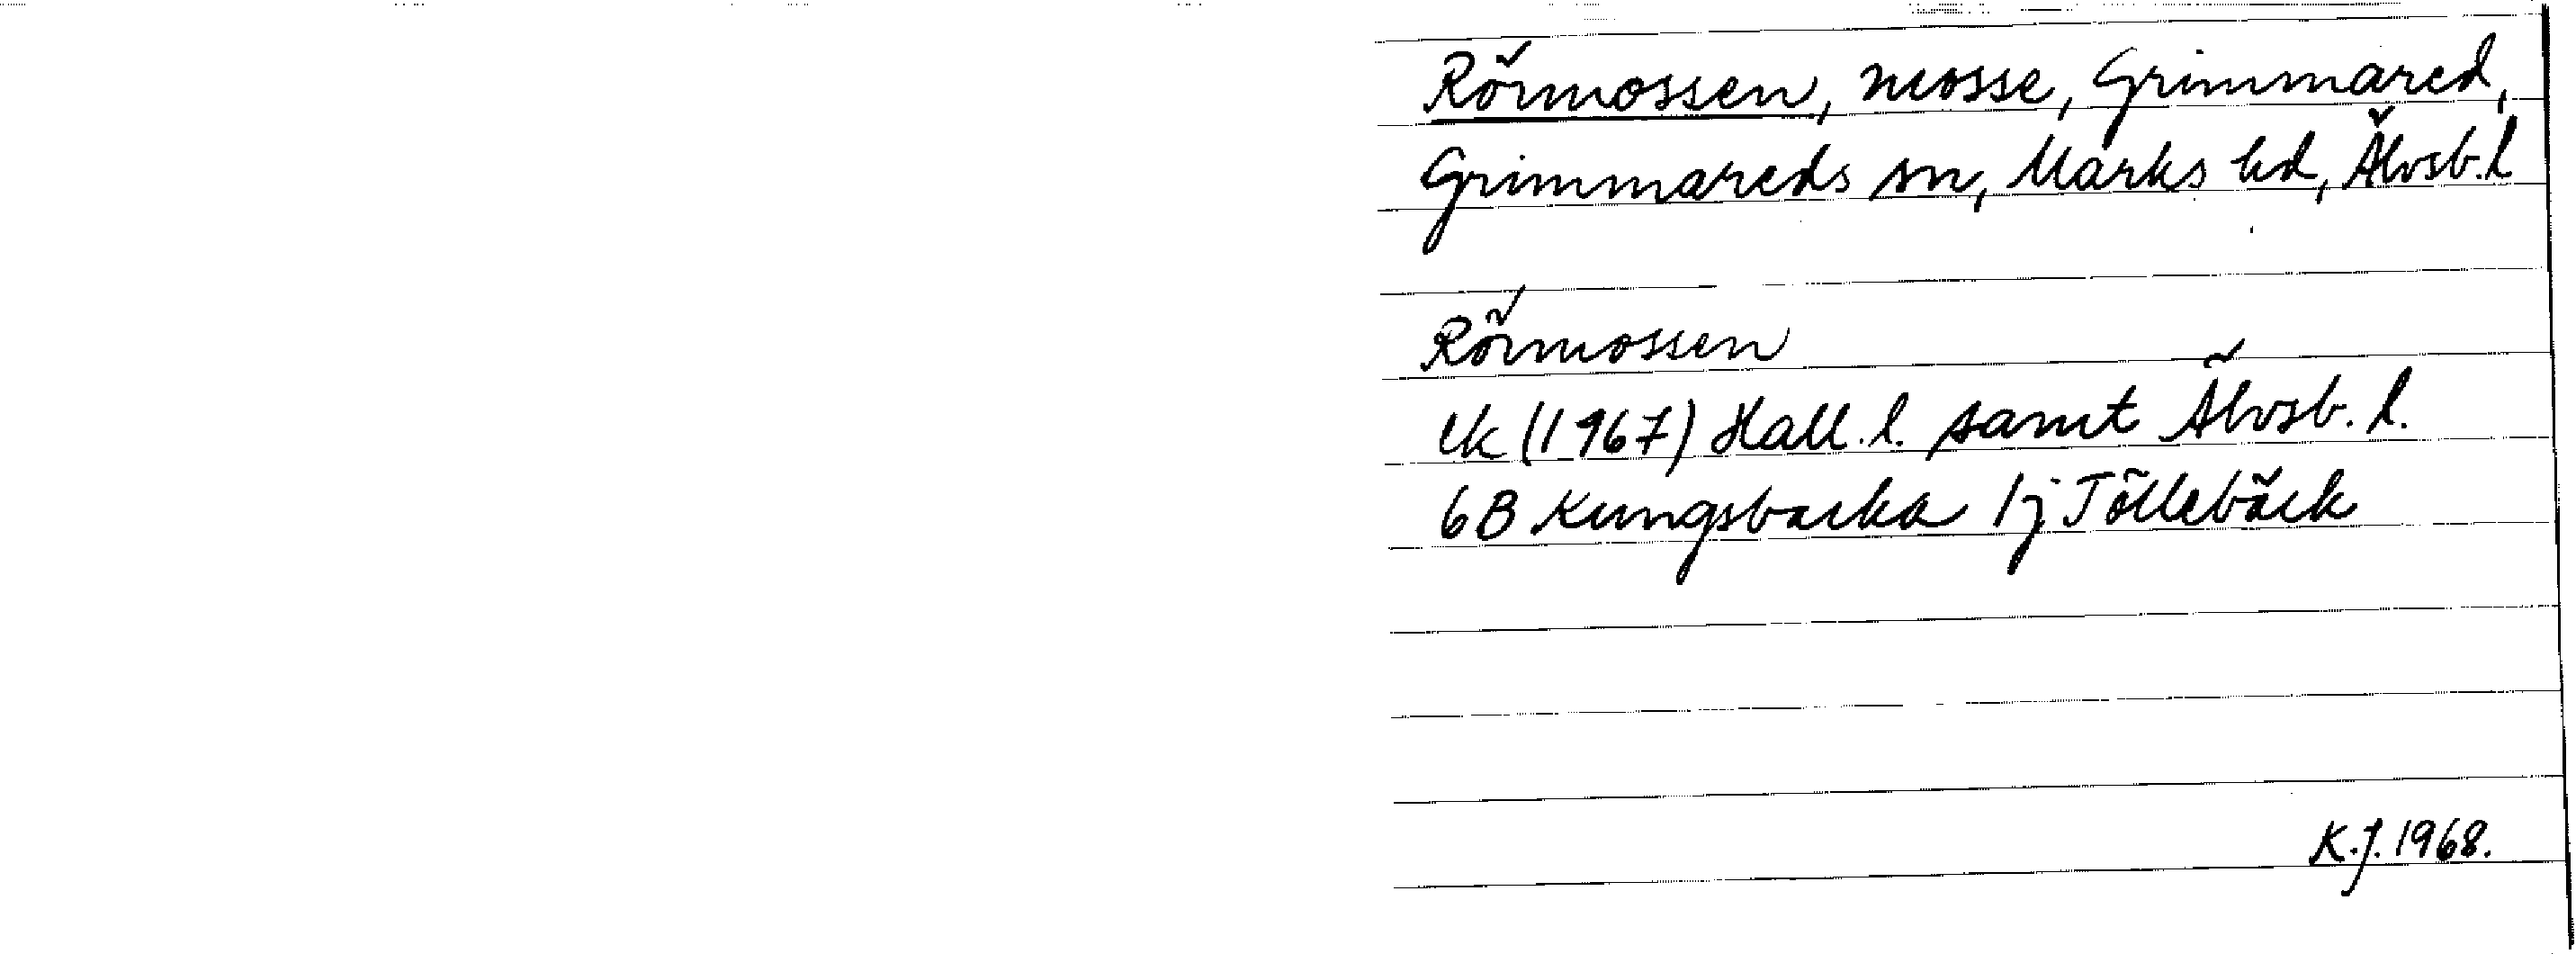 Rörmossen, mosse, Grimmared,
Grimmareds sn, Marks hd, Älvsb. l
Rörmossen
ek (1967) Hall. l. samt Älvsb. l.
6B Kungsbacka 1j Töllebäck
K.J. 1968.